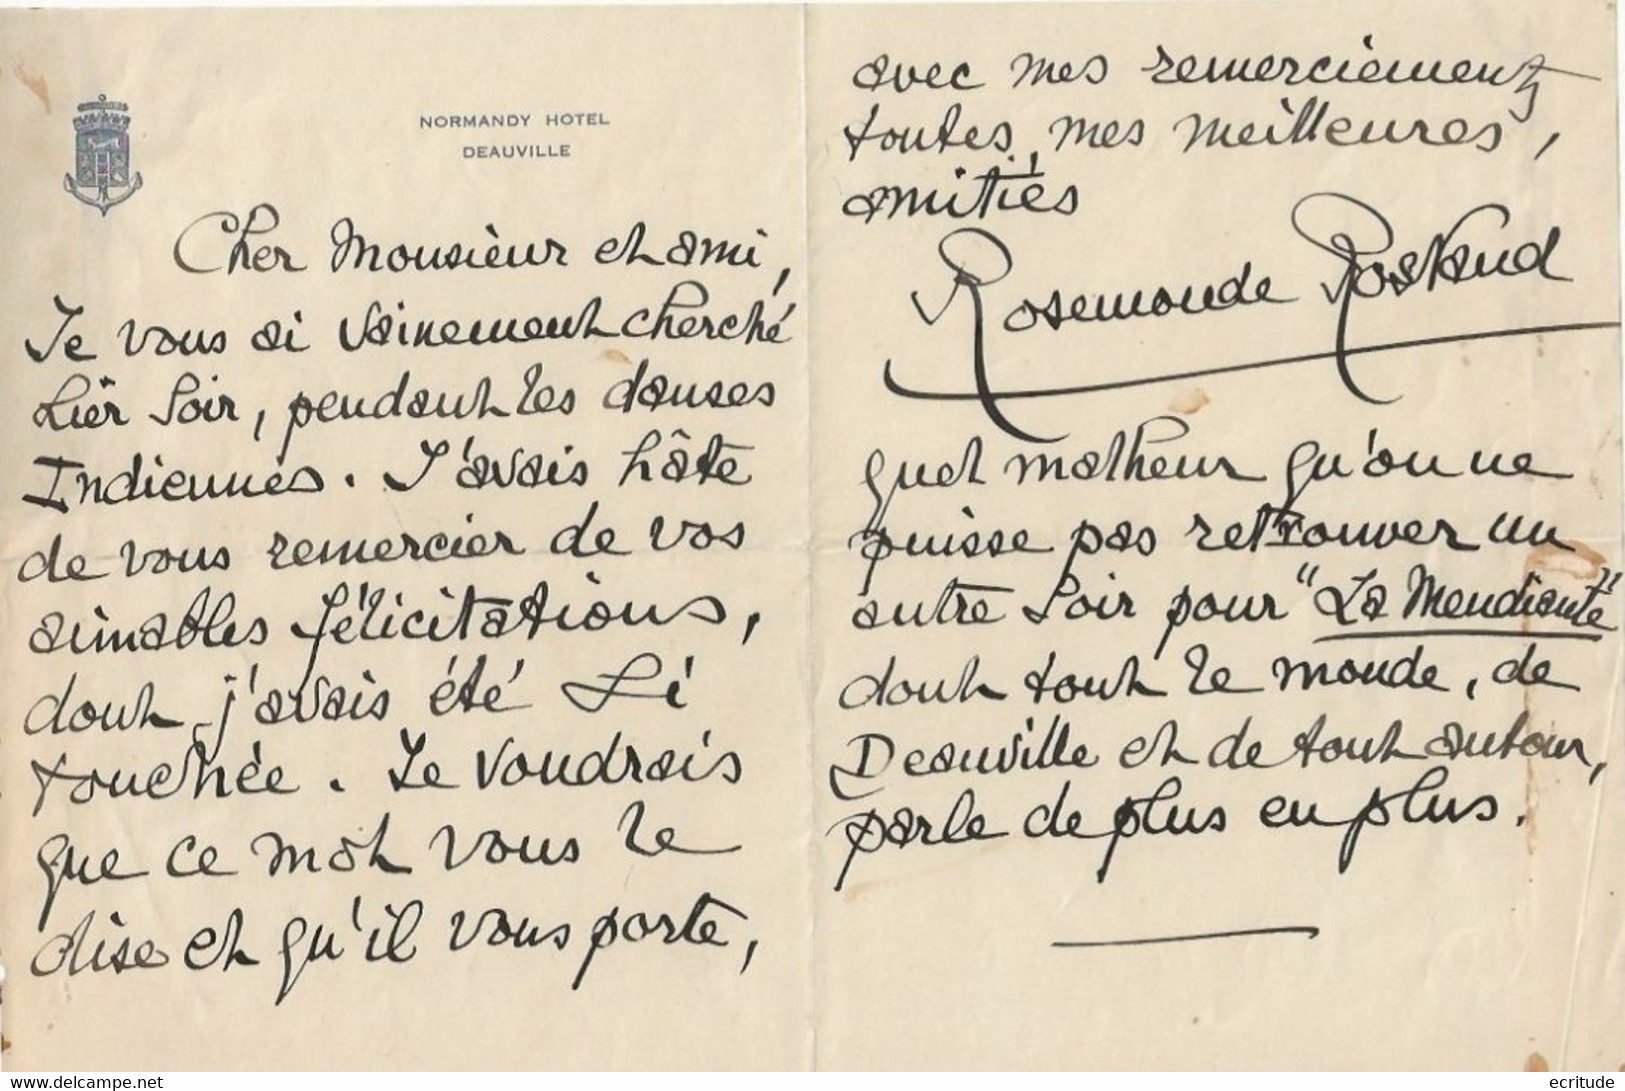 NORMANDY HOTEL
DEAUVILLE
Cher Monsieur et ami,
Je vous ai vainement cherché
hier soir, pendant les danses
Indiennes. J'avais hâte
de vous remercier de vos
aimables félicitations,
dont j'avais été si
touchée. Je voudrais
que ce mot vous le
dise et qu'il vous porte,
avec mes remerciements
toutes mes meilleures,
amitiés
Rosemonde Rostand
quel malheur qu'on ne
puisse pas retrouver un
autre soir pour "La Mendiante"
dont tout le monde, de
Deauville et de tout autour,
parle de plus en plus.
delcampe.net
ecritude